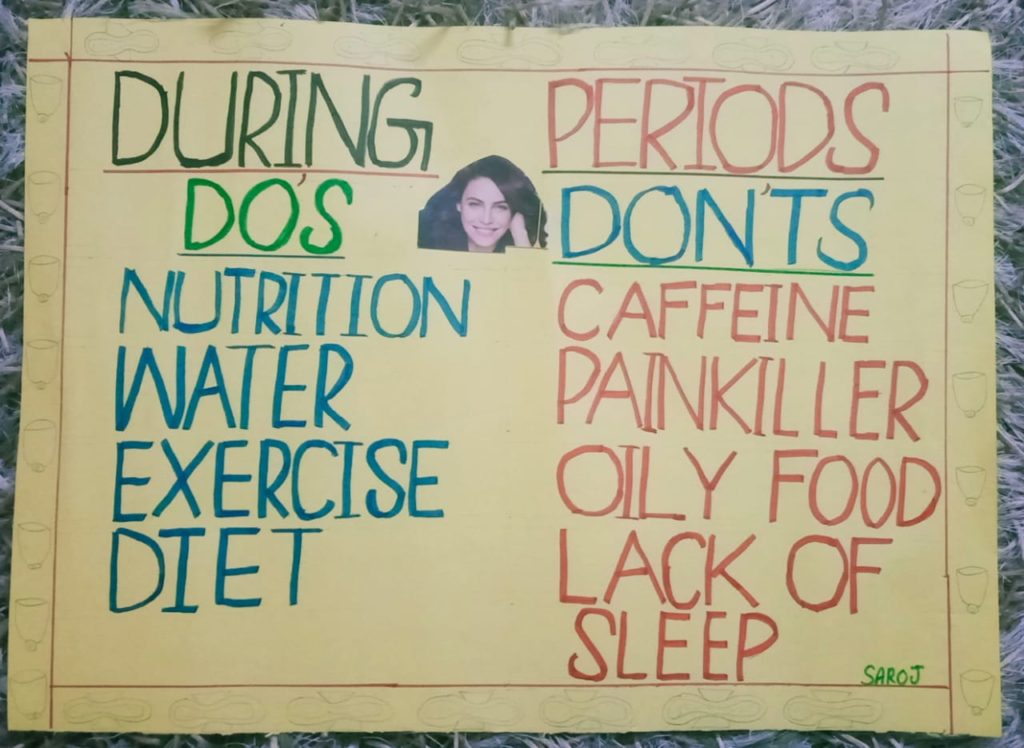 DURING PERIODS
DO'S
NUTRITION
WATER
EXERCISE
DIET
DON'TS
CAFFEINE
PAINKILLER
OILY FOOD
LACK OF
SLEEP
SAROJ